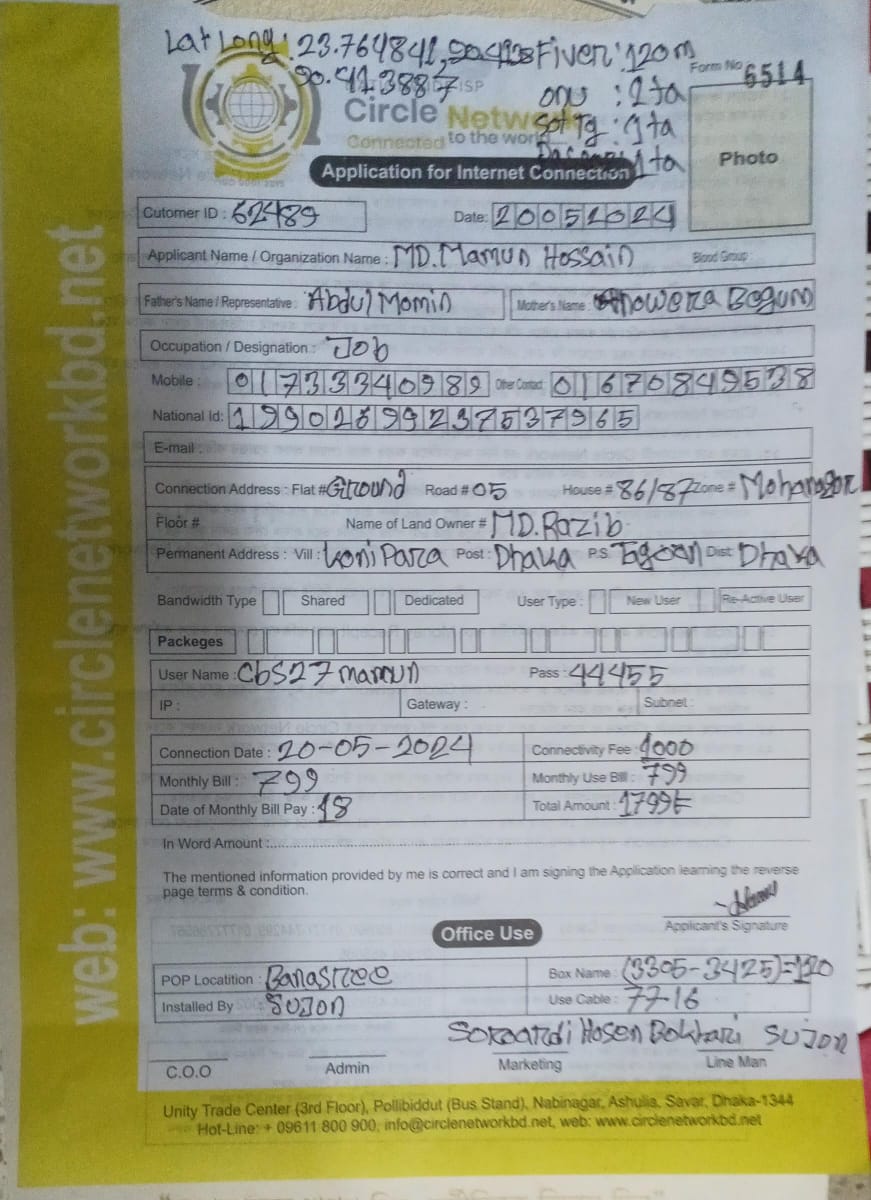 Lat Long: 23.764841, Fiver: 120m
90.413887
Form No 6514
ISP
onu : 1 ta
Circle Network
: 1 ta
Connected to the world
1 ta
Photo
Application for Internet Connection
Cutomer ID : 62489
Date: 20052024
Applicant Name / Organization Name : MD. Mamun Hossain Blood Group :
Father's Name / Representative : Abdul Momin Mother's Name : Begum
Occupation / Designation : Job
Mobile : 01733340989 Other Contact 01670849538
National Id: 19902699237537965
E-mail :
Connection Address : Flat # Ground Road # 05 House # 86/87 Zone # Mohanagor
Floor # Name of Land Owner # MD. Razib
Permanent Address : Vill : Koni Para Post : Dhaka P.S. Dist: Dhaka
Bandwidth Type Shared Dedicated User Type : New User Re-Active User
Packeges
User Name : Cbs27mamun Pass : 44455
IP : Gateway : Subnet :
Connection Date : 20-05-2024 Connectivity Fee : 1000
Monthly Bill : 799 Monthly Use Bill : 799
Date of Monthly Bill Pay : 18 Total Amount : 1799
In Word Amount :
The mentioned information provided by me is correct and I am signing the Application learning the reverse
page terms & condition.
Applicant's Signature
Office Use
POP Locatition : Banasree Box Name : (3305-3425)=120
Installed By : SUJON Use Cable : 77-16
Hosen Bokhari SUJON
C.O.O Admin Marketing Line Man
Unity Trade Center (3rd Floor), Pollibiddut (Bus Stand), Nabinagar, Ashulia, Savar, Dhaka-1344
Hot-Line: + 09611 800 900, info@circlenetworkbd.net, web: www.circlenetworkbd.net
web: www.circlenetworkbd.net